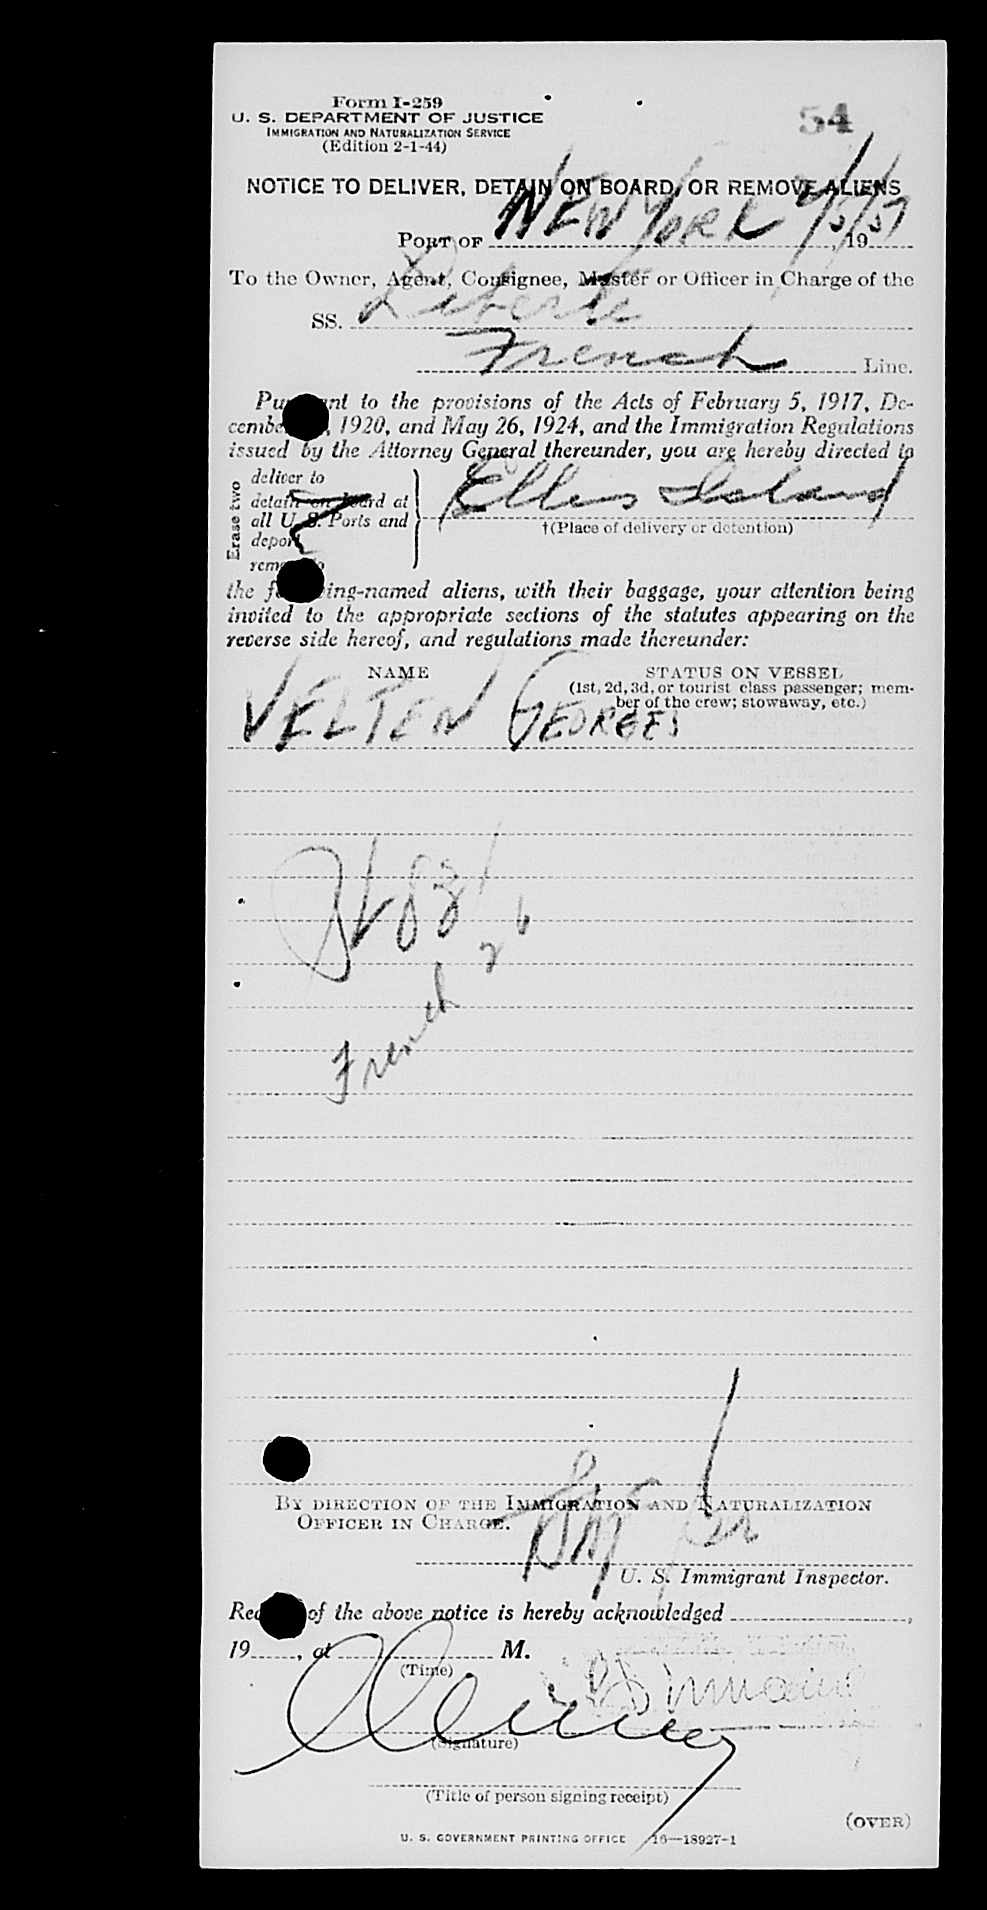 Form I-259
U. S. DEPARTMENT OF JUSTICE
IMMIGRATION AND NATURALIZATION SERVICE
(Edition 2-1-44)
54
NOTICE TO DELIVER, DETAIN ON BOARD, OR REMOVE ALIENS
PORT OF NEW YORK 2/5/57, 19
To the Owner, Agent, Consignee, Master or Officer in Charge of the
SS. Liberte
French Line.
Pursuant to the provisions of the Acts of February 5, 1917, De-
cember , 1920, and May 26, 1924, and the Immigration Regulations
issued by the Attorney General thereunder, you are hereby directed to
Erase two
deliver to
detain on board at
all U. S. Ports and
deport
remove to
Ellis Island
†(Place of delivery or detention)
the following-named aliens, with their baggage, your attention being
invited to the appropriate sections of the statutes appearing on the
reverse side hereof, and regulations made thereunder:
NAME
STATUS ON VESSEL
(1st, 2d, 3d, or tourist class passenger; mem-
ber of the crew; stowaway, etc.)
VELTEN GEORGES
French 26
BY DIRECTION OF THE IMMIGRATION AND NATURALIZATION
OFFICER IN CHARGE.
U. S. Immigrant Inspector.
Receipt of the above notice is hereby acknowledged ,
19 , at M.
(Time)
(Signature)
(Title of person signing receipt)
(OVER)
U. S. GOVERNMENT PRINTING OFFICE 16—18927-1